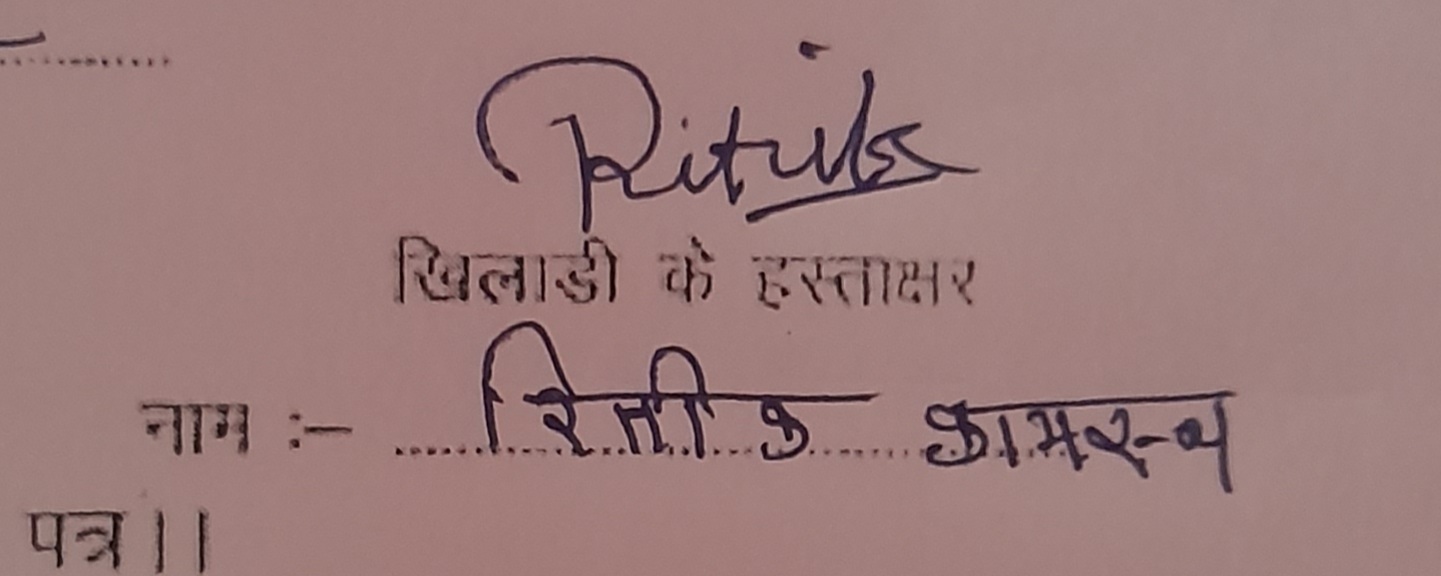 Ritik
खिलाडी के हस्ताक्षर
नाम :- रितीक कायस्थ
पत्र।।